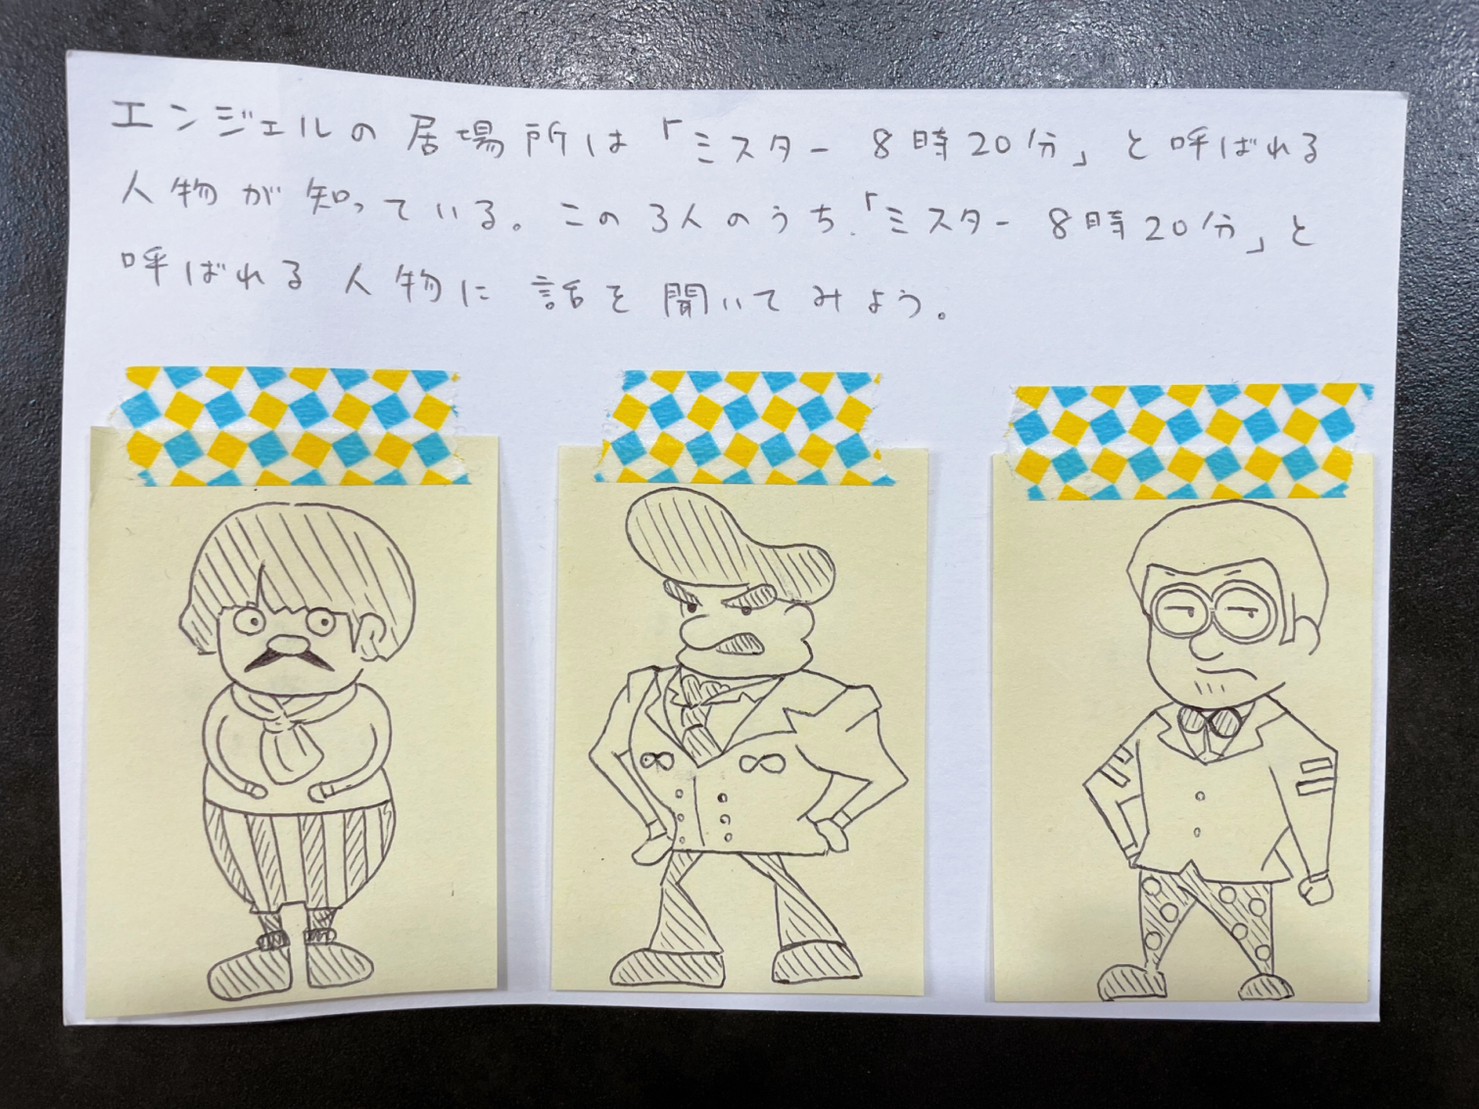 エンジェルの居場所は「ミスター 8時20分」と呼ばれる
人物が知っている。この3人のうち、「ミスター 8時20分」と
呼ばれる人物に話を聞いてみよう。